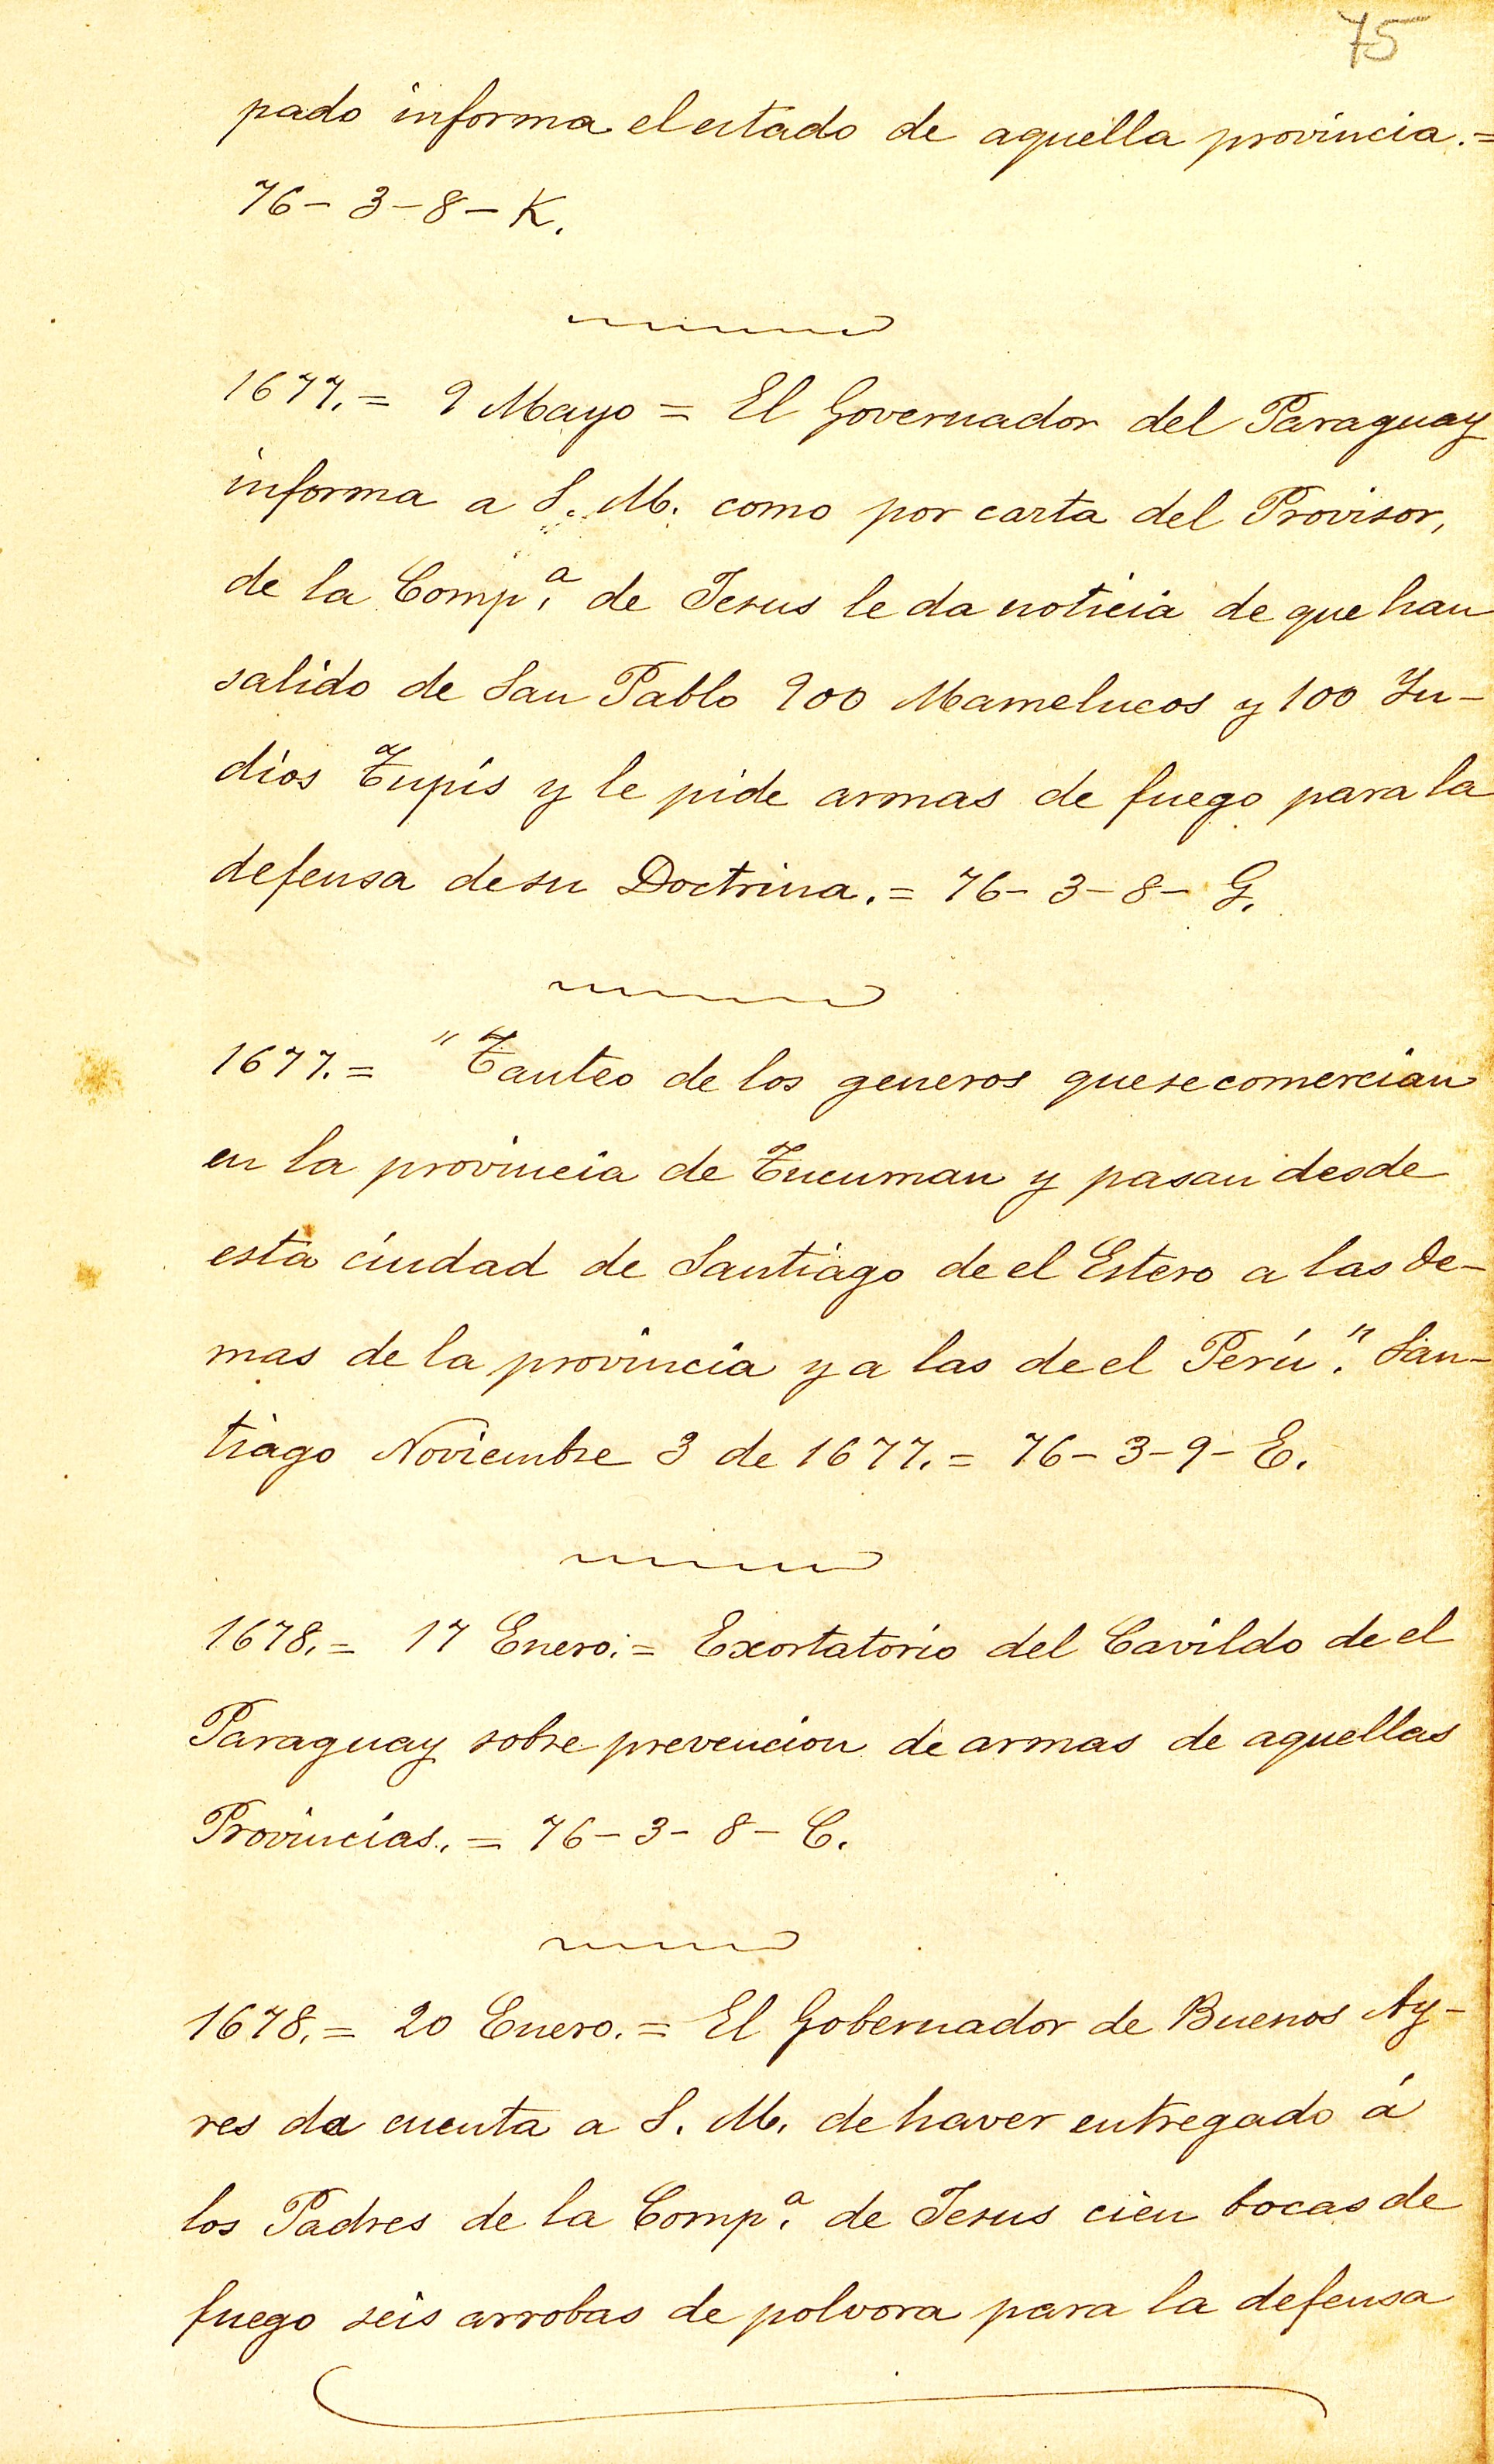 75
pado informa el estado de aquella provincia.=
76-3-8-K.
1677.= 9 Mayo = El Governador del Paraguay
informa a S. M. como por carta del Provisor,
de la Comp.ª de Jesus le da noticia de que han
salido de San Pablo 900 Mamelucos y 100 In-
dios Tupis y le pide armas de fuego para la
defensa de su Doctrina.= 76-3-8-G.
1677.= "Tanteo de los generos que se comercian
en la provincia de Tucuman y pasan desde
esta ciudad de Santiago de el Estero a las de-
mas de la provincia y a las de el Perú." San-
tiago Noviembre 3 de 1677.= 76-3-9-E.
1678.= 17 Enero.= Exortatorio del Cavildo de el
Paraguay sobre prevencion de armas de aquellas
Provincias.= 76-3-8-C.
1678.= 20 Enero.= El Gobernador de Buenos Ay-
res da cuenta a S. M. de haver entregado á
los Padres de la Comp.ª de Jesus cien bocas de
fuego seis arrobas de polvora para la defensa